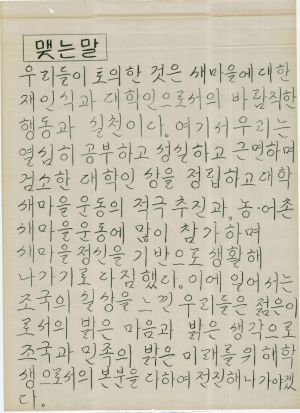 맺는말
우리들이 토의한 것은 새마을에 대한
재인식과 대학인으로서의 바람직한
행동과 실천이다. 여기서 우리는
열심히 공부하고 성실하고 근면하며
검소한 대학인 상을 정립하고 대학
새마을운동의 적극 추진과, 농·어촌
새마을운동에 많이 참가하며
새마을정신을 기반으로 생활해
나가기로 다짐했다. 이에 있어서는
조국의 실상을 느낀 우리들은 젊음이
로서의 밝은 마음과 밝은 생각으로
조국과 민족의 밝은 미래를 위해 학
생으로서의 본분을 다하여 전진해 나가야겠
다.